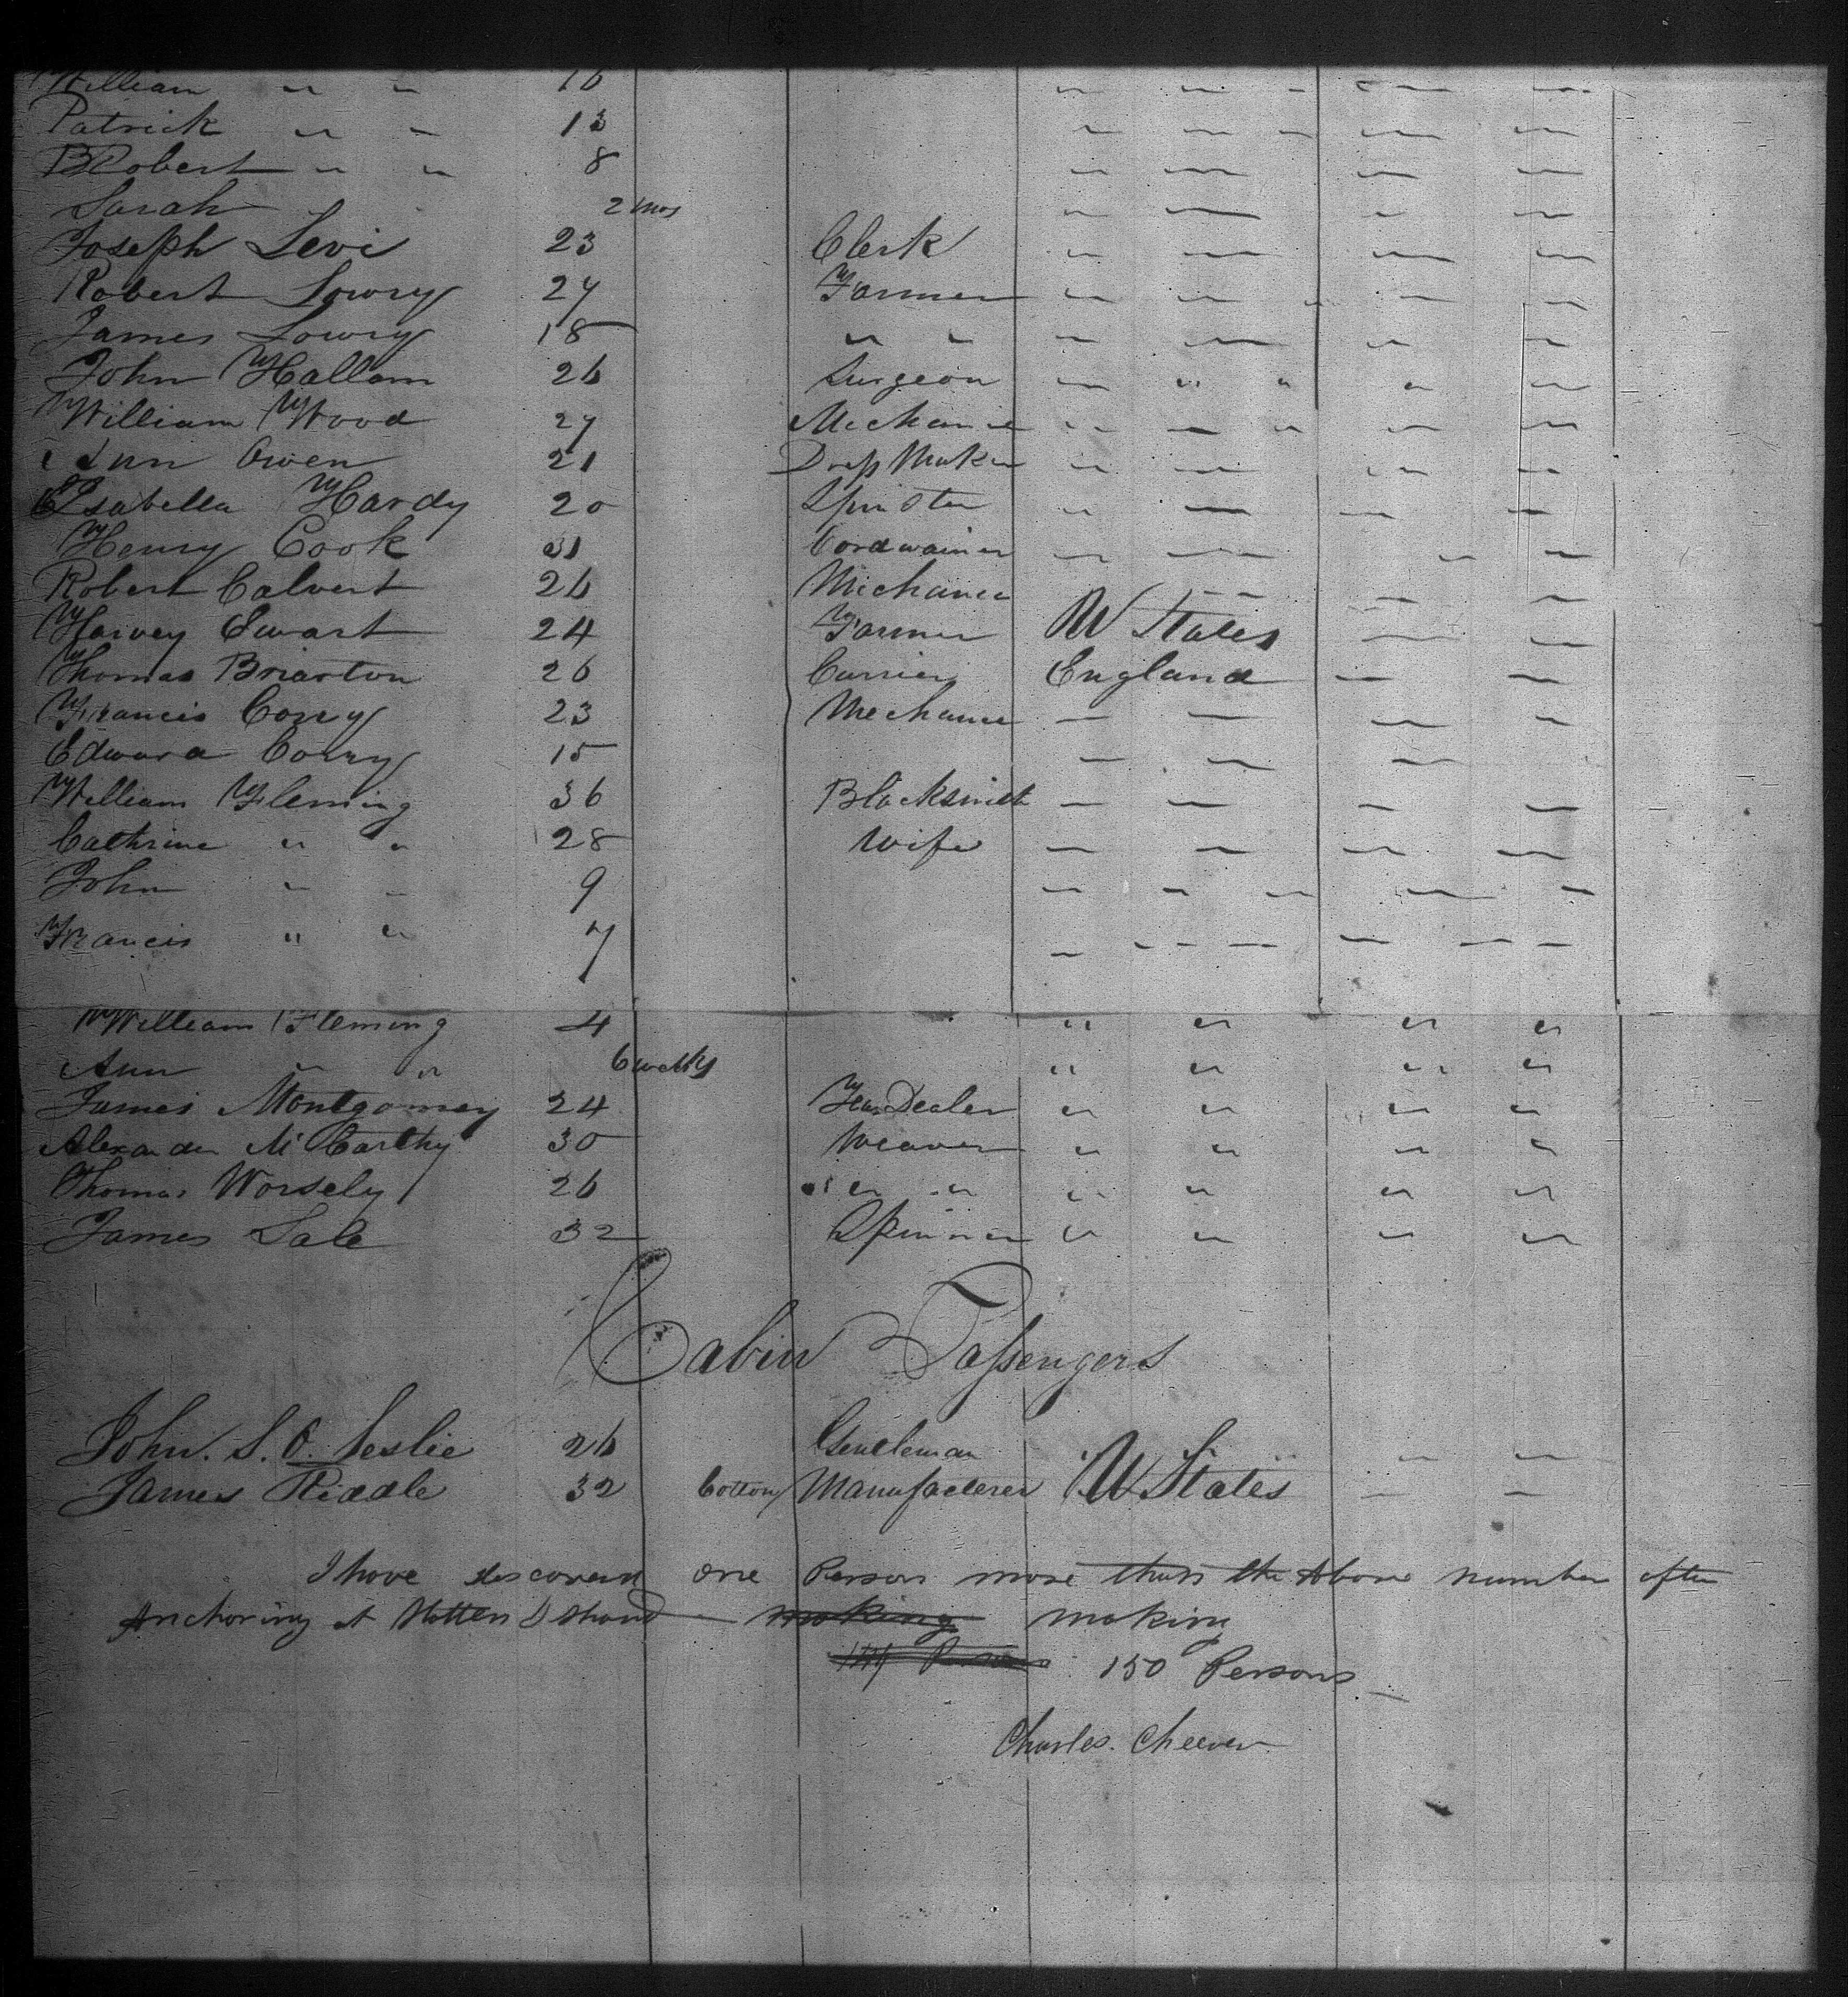 William " " 16 " " " " "
Patrick " " 13 " " " " "
Robert " " 8 " " " "
Sarah 2 mos " " " "
Joseph Levi 23 Clerk " " " "
Robert Lowry 27 Farmer " " " "
James Lowry 18 " " " " " "
John Hallam 26 Surgeon " " " " "
William Wood 27 Mechanic " " " " "
Ann Owen 21 Dress Maker " " " "
Isabella Hardy 20 Spinster " " " "
Henry Cook 31 Cordwainer " " " "
Robert Calvert 26 Michanic " " " "
Harvey Ewart 24 Farmer U States " "
Thomas Briarton 26 Currier England " "
Francis Corry 23 Mechanic " " " "
Edward Corry 15 " " "
William Fleming 36 Blacksmith " " " "
Cathrine " " 28 Wife " " " "
John " " 9 " " " " "
Francis " " 7 " " " " " " "
William Fleming 4 " " " "
Ann " " 6 weeks " " " "
James Montgomery 24 Dealer " " " "
Alexander McCarthy 30 Weaver " " " "
Thomas Worsely 26 " " " " " "
James Sale 32 Spinner " " " "
Cabin Passengers
John. S. O. Leslie 26 Gentleman " "
James Riddle 32 Cotton Manufacterer U States " "
I have discoverd one Person more than the Above number after
Anchoring at Statten Island making making
Persons 150 Persons
Charles. Cheever